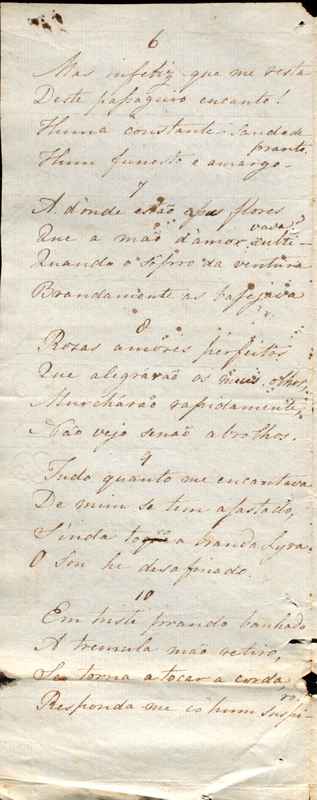 6
Mas infeliz que me resta
Deste passageiro encanto!
Huma constante Saudade
Hum funesto e amargo pranto.
7
A d'onde estão as flores
Que a mão d'amor cultivava?
Quando o da ventura
Brandamente as bafejava
8
Rozas amores perfeitos
Que alegrarão os meus olhos,
Murchárão rapidamente,
Não vejo senão abrolhos.
9
Tudo quanto me encantava
De mim se tem afastado,
Sinda a branda Lyra
O Som he desafinado.
10
Em triste pranto banhado
A tremula mão retiro,
Se torna a tocar a corda
Responda me cõ hum suspiro,